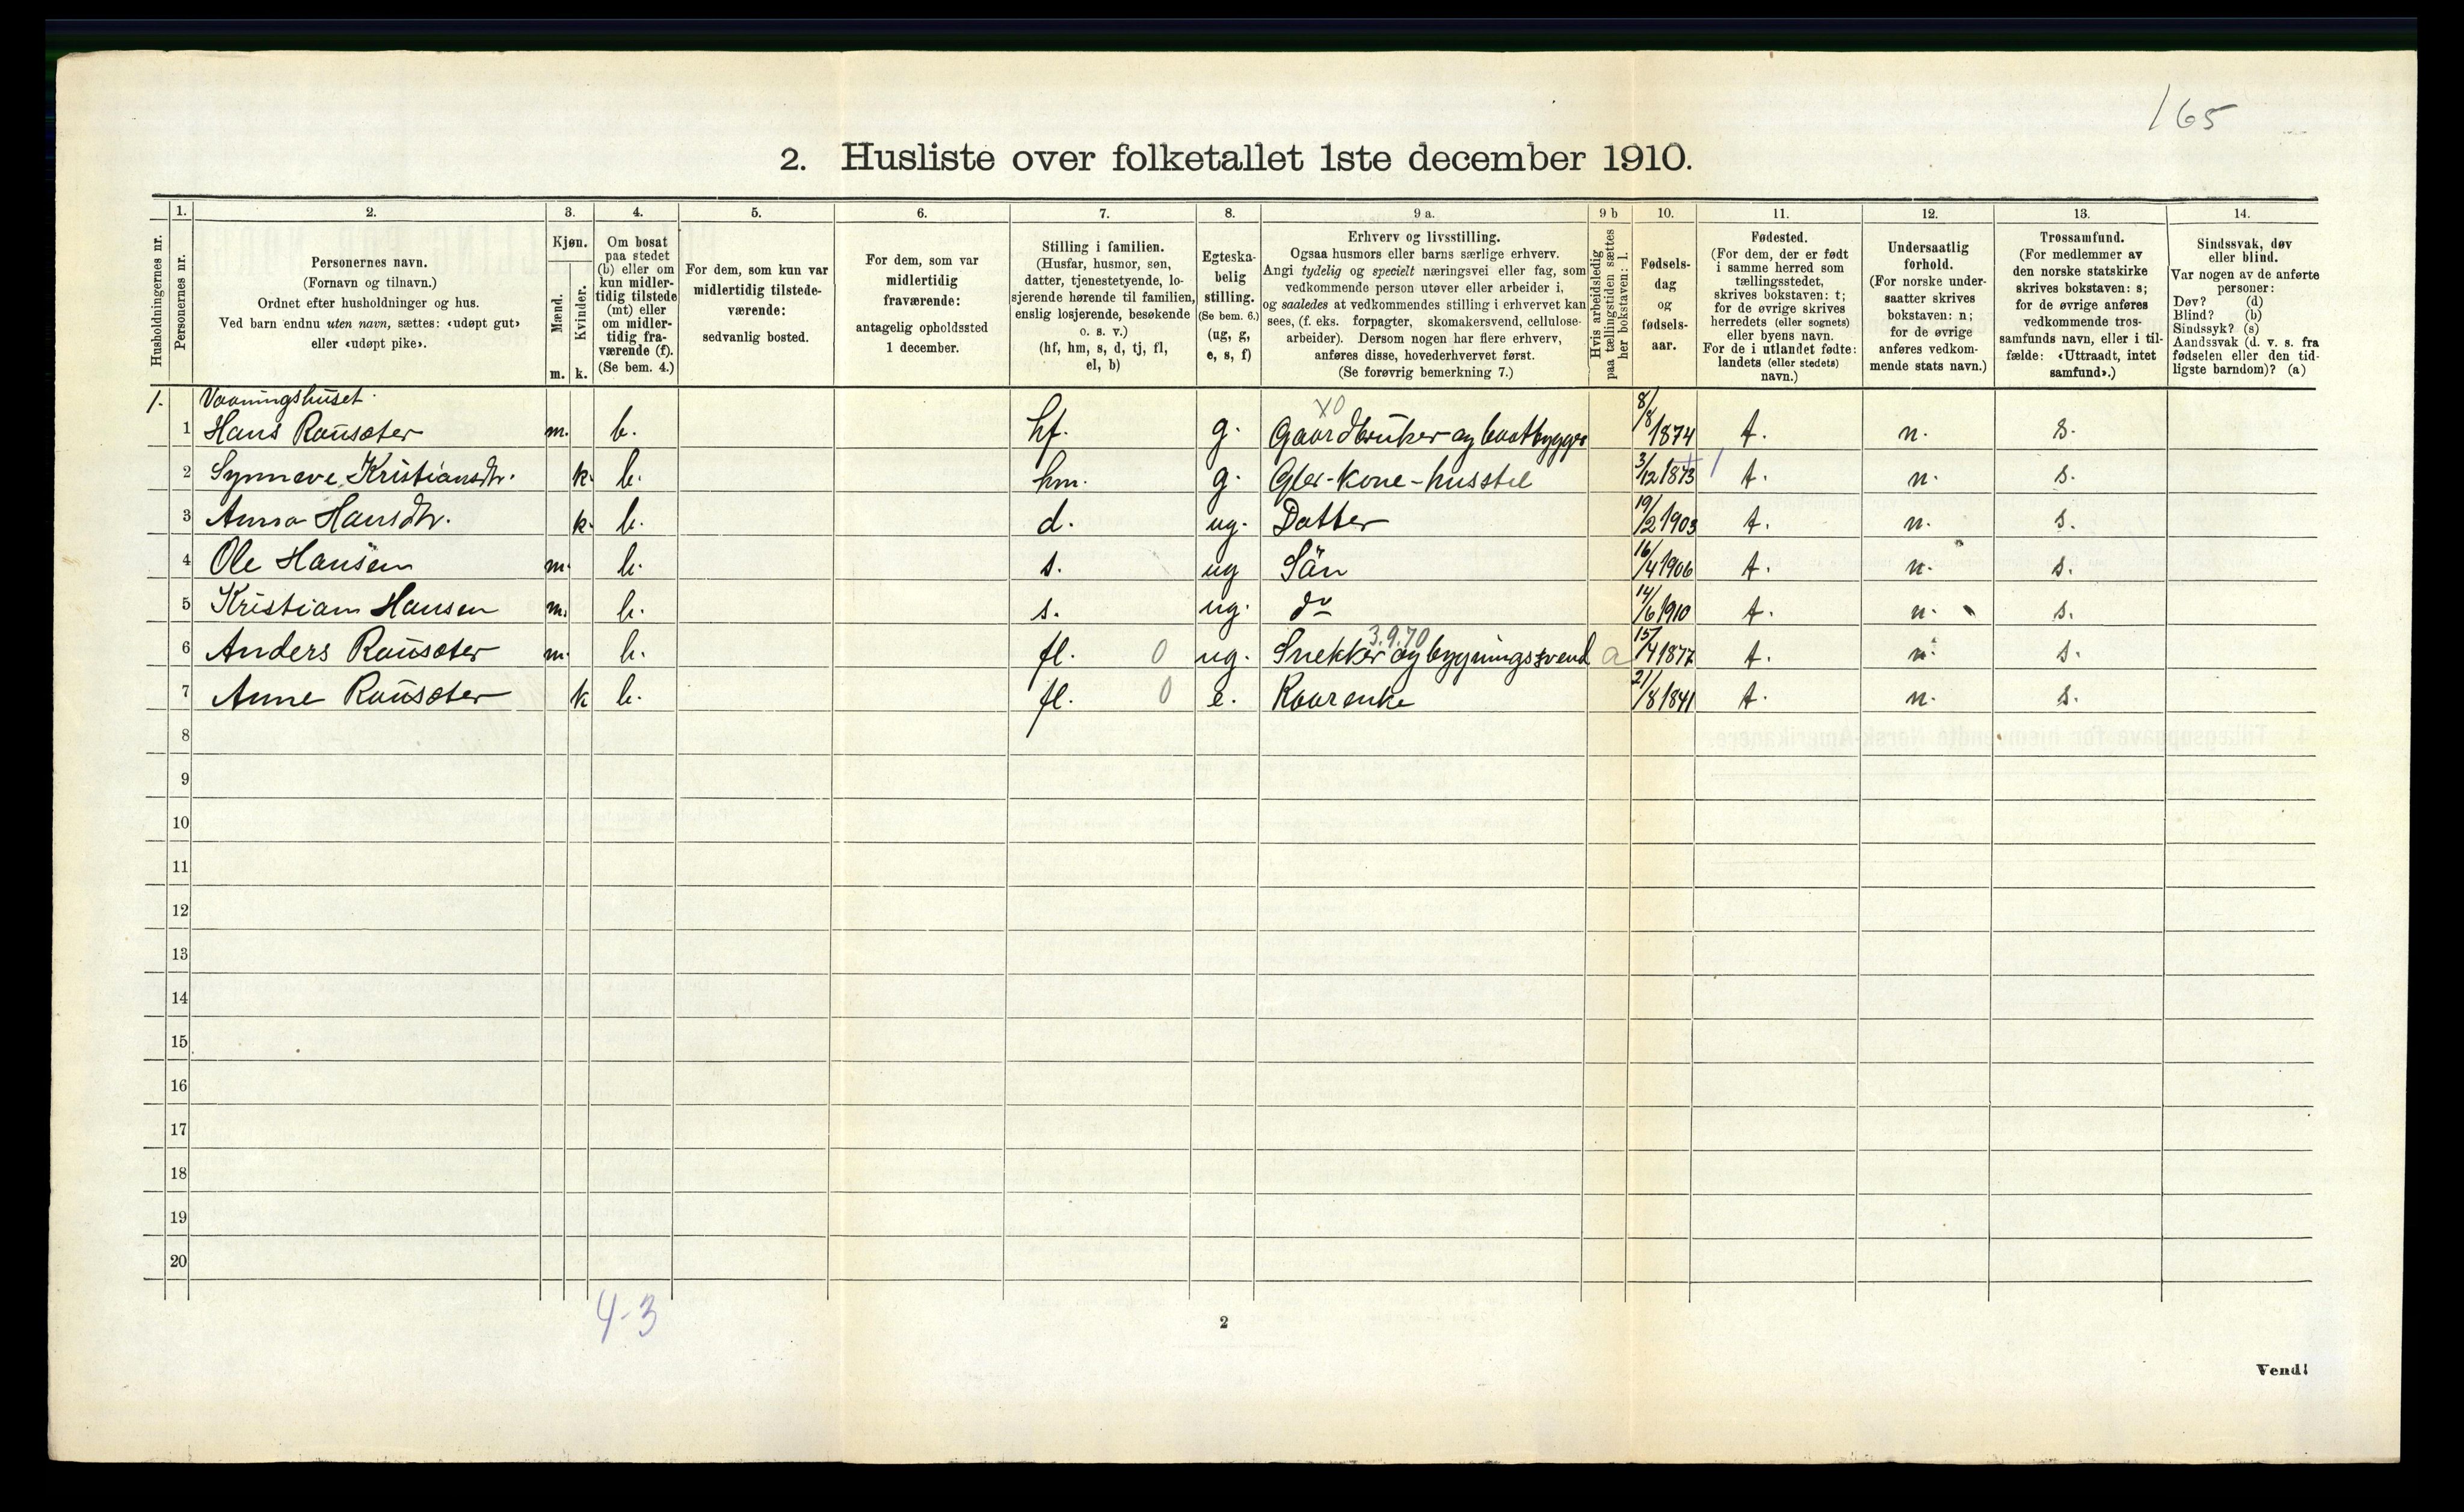 165
2. Husliste over folketallet 1ste december 1910.
1. 2. 3. 4. 5. 6. 7. 8. 9 a. 9 b 10. 11. 12. 13. 14.
Husholdningernes nr.
Personernes nr.
Personernes navn.
(Fornavn og tilnavn.)
Ordnet efter husholdninger og hus.
Ved barn endnu uten navn, sættes: «udøpt gut»
eller «udøpt pike».
Kjøn.
Mænd.
Kvinder.
m. k.
Om bosat
paa stedet
(b) eller om
kun midler-
tidig tilstede
(mt) eller
om midler-
tidig fra-
værende (f).
(Se bem. 4.)
For dem, som kun var
midlertidig tilstede-
værende:
sedvanlig bosted.
For dem, som var
midlertidig
fraværende:
antagelig opholdssted
1 december.
Stilling i familien.
(Husfar, husmor, søn,
datter, tjenestetyende, lo-
sjerende hørende til familien,
enslig losjerende, besøkende
o. s. v.)
(hf, hm, s, d, tj, fl,
el, b)
Egteska-
belig
stilling.
(Se bem. 6.)
(ug, g,
e, s, f)
Erhverv og livsstilling.
Ogsaa husmors eller barns særlige erhverv.
Angi tydelig og specielt næringsvei eller fag, som
vedkommende person utøver eller arbeider i,
og saaledes at vedkommendes stilling i erhvervet kan
sees, (f. eks. forpagter, skomakersvend, cellulose-
arbeider). Dersom nogen har flere erhverv,
anføres disse, hovederhvervet først.
(Se forøvrig bemerkning 7.)
Hvis arbeidsledig
paa tællingstiden sættes
her bokstaven: l.
Fødsels-
dag
og
fødsels-
aar.
Fødested.
(For dem, der er født
i samme herred som
tællingsstedet,
skrives bokstaven: t;
for de øvrige skrives
herredets (eller sognets)
eller byens navn.
For de i utlandet fødte:
landets (eller stedets)
navn.)
Undersaatlig
forhold.
(For norske under-
saatter skrives
bokstaven: n;
for de øvrige
anføres vedkom-
mende stats navn.)
Trossamfund.
(For medlemmer av
den norske statskirke
skrives bokstaven: s;
for de øvrige anføres
vedkommende tros-
samfunds navn, eller i til-
fælde: «Uttraadt, intet
samfund».)
Sindssvak, døv
eller blind.
Var nogen av de anførte
personer:
Døv? (d)
Blind? (b)
Sindssyk? (s)
Aandssvak (d. v. s. fra
fødselen eller den tid-
ligste barndom)? (a)
1. Vaaningshuset
X0
1 Hans Rausæter m. b. hf. g. Gaardbruker og baatbygger 8/8 1874 t. n. s.
2 Synneve Kristiansdtr. k. b. hm. g. Gbr-kone-husstel 3/12 1873 t. n. s.
3 Anna Hansdtr. k. b. d. ug. Datter 19/2 1903 t. n. s.
4 Ole Hansen m. b. s. ug Sön 16/4 1906 t. n. s.
5 Kristian Hansen m. b. s. ug. do 14/6 1910 t. n. s.
3.9.70
6 Anders Rausæter m. b. fl. 0 ug. Snekker og bygningssvend a 15/4 1877 t. n. s.
7 Anne Rausæter k b. fl. 0 e. Kaarenke 21/8 1841 t. n. s.
8
9
10
11
12
13
14
15
16
17
18
19
20
4-3
2
Vend!